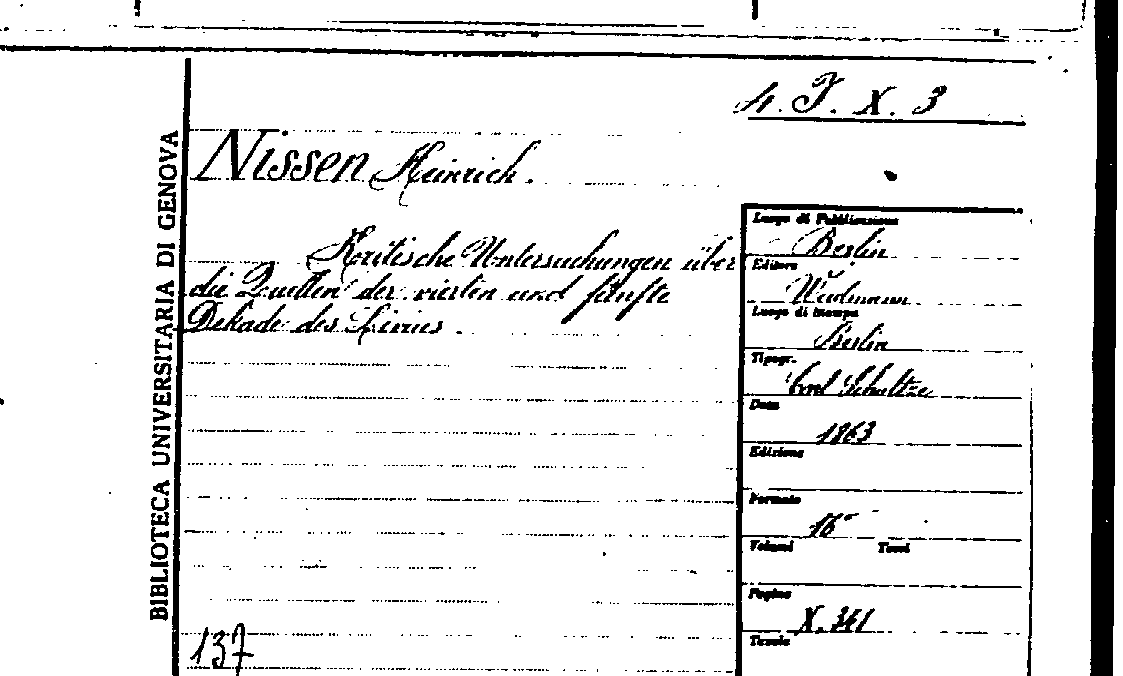 4. J. X. 3
BIBLIOTECA UNIVERSITARIA DI GENOVA
Nissen Heinrich.
Kritische Untersuchungen über
die Quellen der vierten und fünften
Dekade des Livius.
Luogo di Pubblicazione
Berlin
Editore
Weidmann
Luogo di stampa
Berlin
Tipogr.
Carl Schultze
Data
1863
Edizione
Formato
16°
Volumi Tomi
Pagine
X. 341
Tavole
137